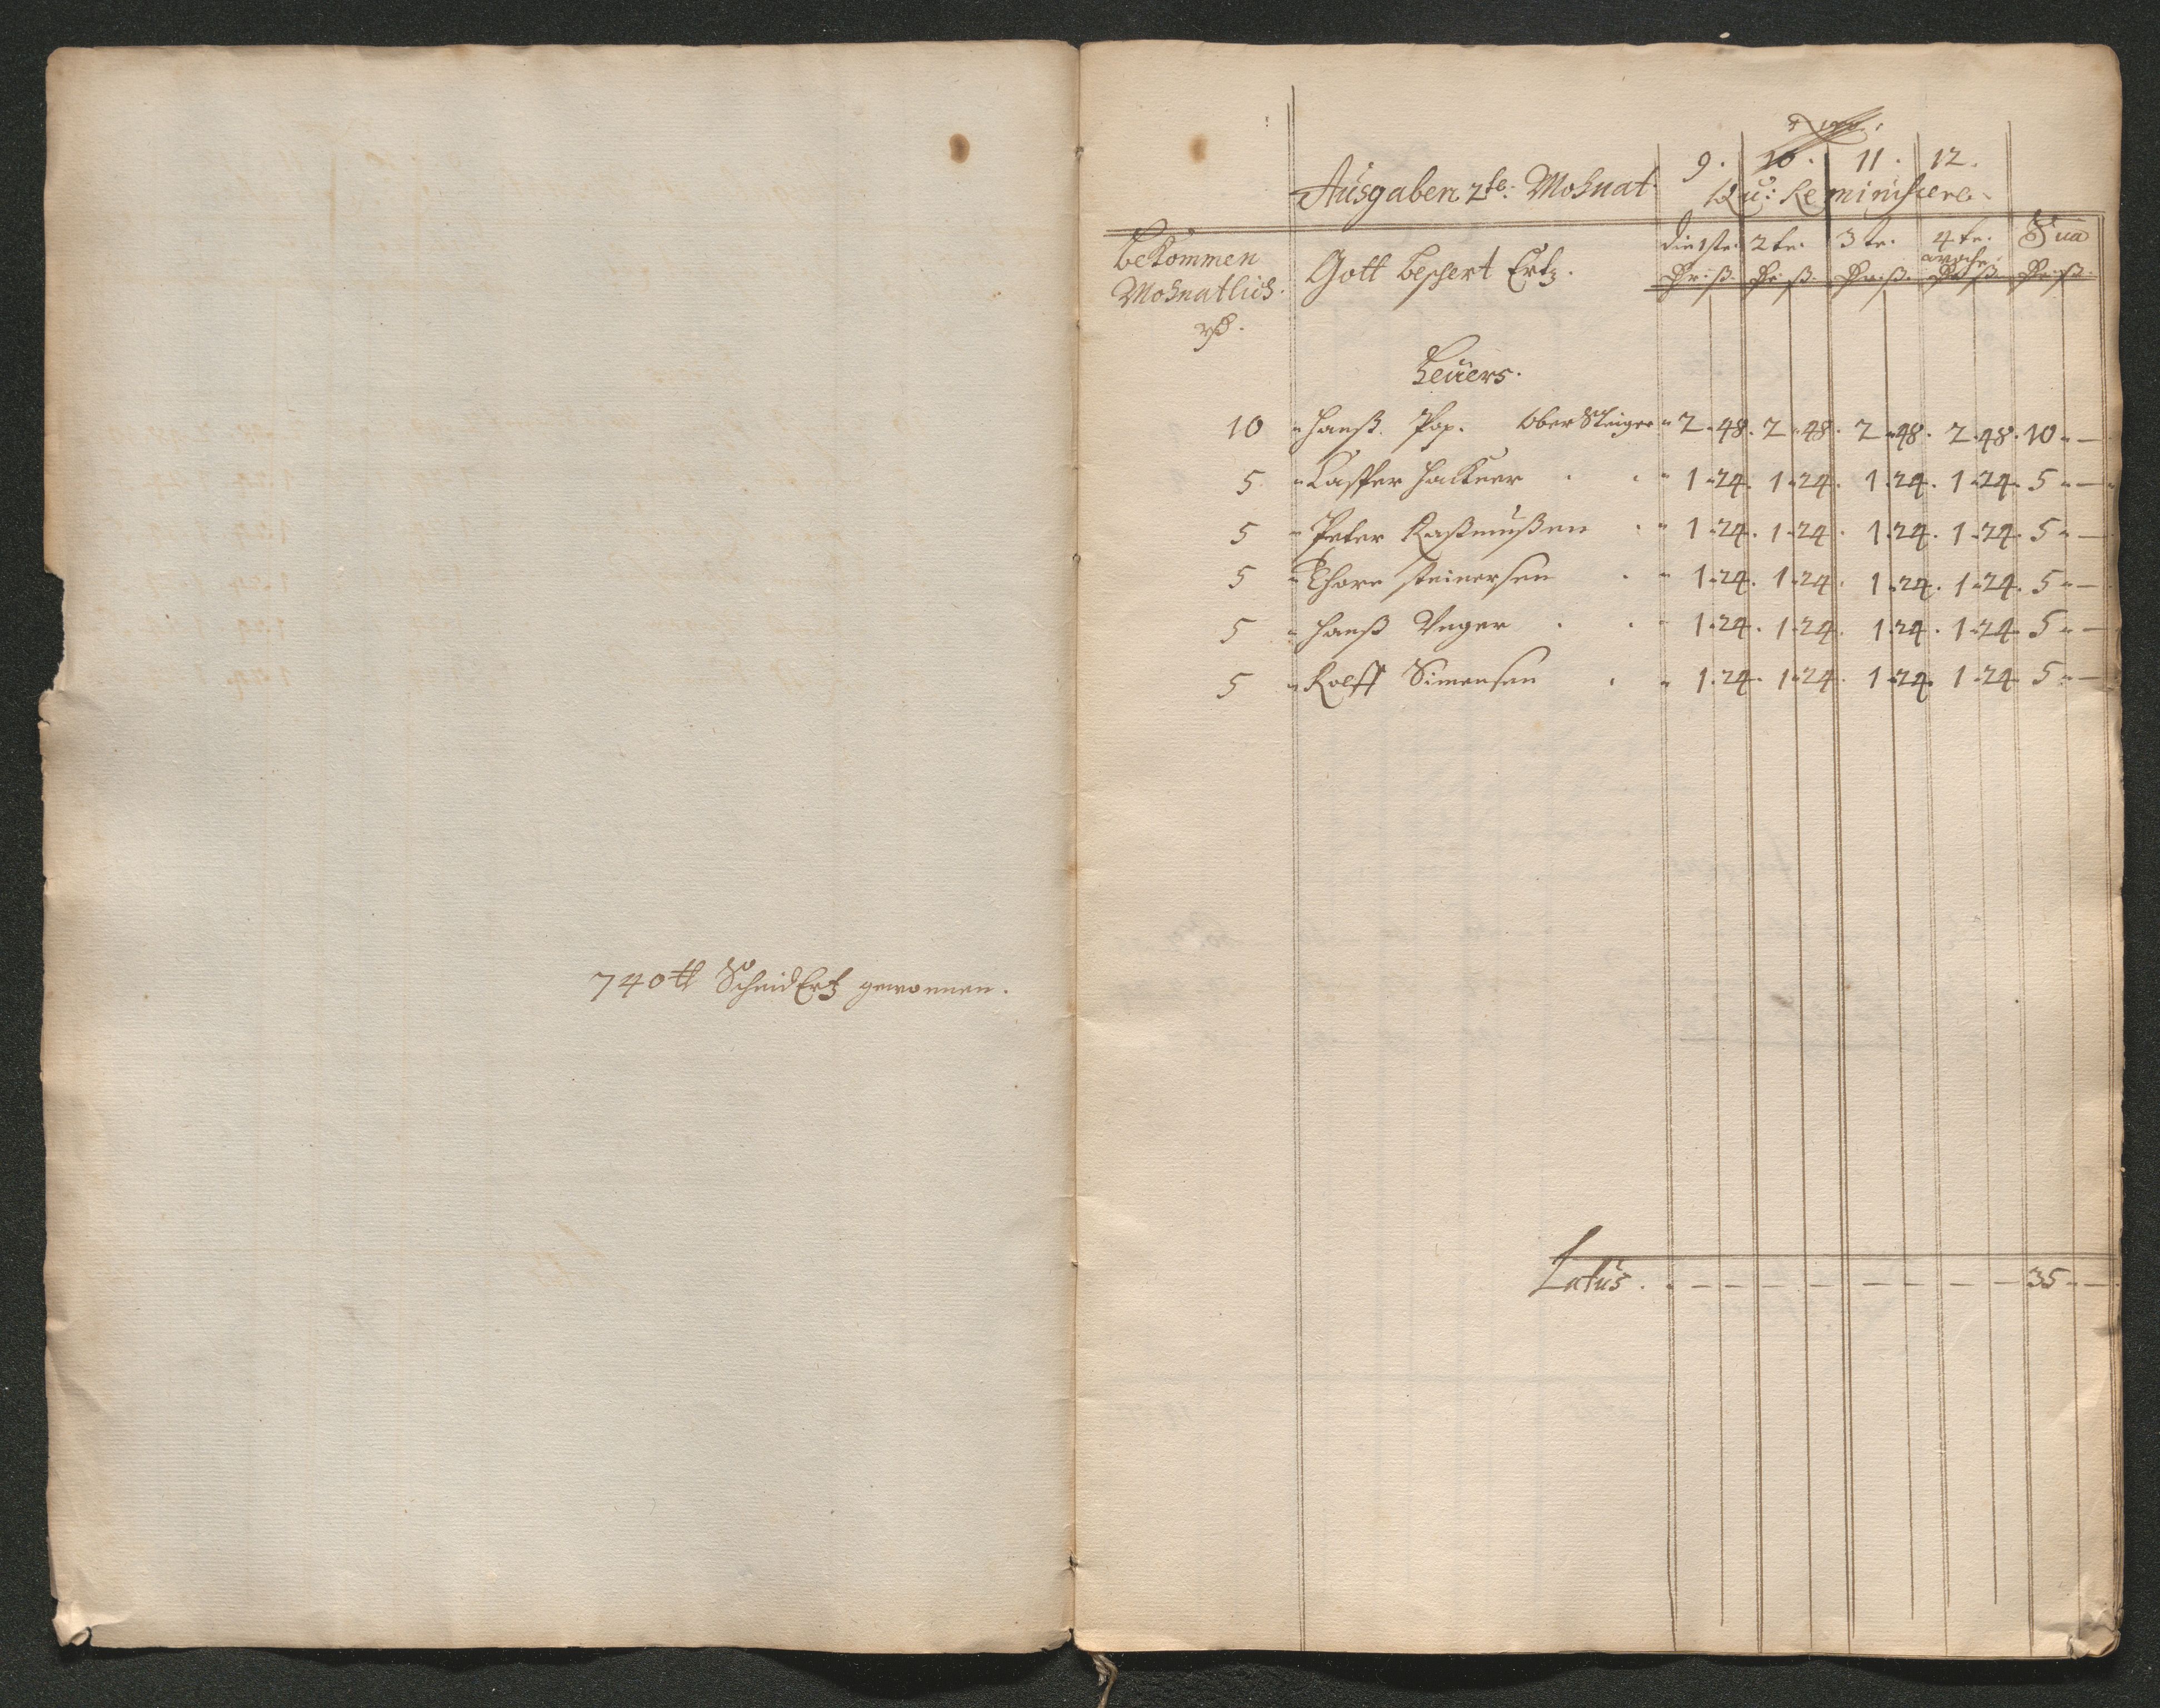 740 ℔ Scheid Ertz gewonnen.
9. 10. 11. 12.
Ausgaben 2te. Mohnat. Qu: Reminiscere.
bekommen Mohnatlich. rß.
Gott beschert Ertz.
die 1ste. 2te. 3te. 4te. woche. Sua
Heüers.
10 " Hanß Pop. Ober Steiger " 2 " 48. 2 " 48. 2 " 48. 2 " 48. 10 " —
5 " Casper Hackner . . " 1 " 24. 1 " 24. 1 " 24. 1 " 24. 5 " —
5 " Peter Raßmußen . " 1 " 24. 1 " 24. 1 " 24. 1 " 24. 5 " —
5 " Thore Steinersen . " 1 " 24. 1 " 24. 1 " 24. 1 " 24. 5 " —
5 " Hanß Unger . . " 1 " 24. 1 " 24. 1 " 24. 1 " 24. 5 " —
5 " Roeff Simensen . " 1 " 24. 1 " 24. 1 " 24. 1 " 24. 5 " —
Latus. . — — — — — — — — 35 " —